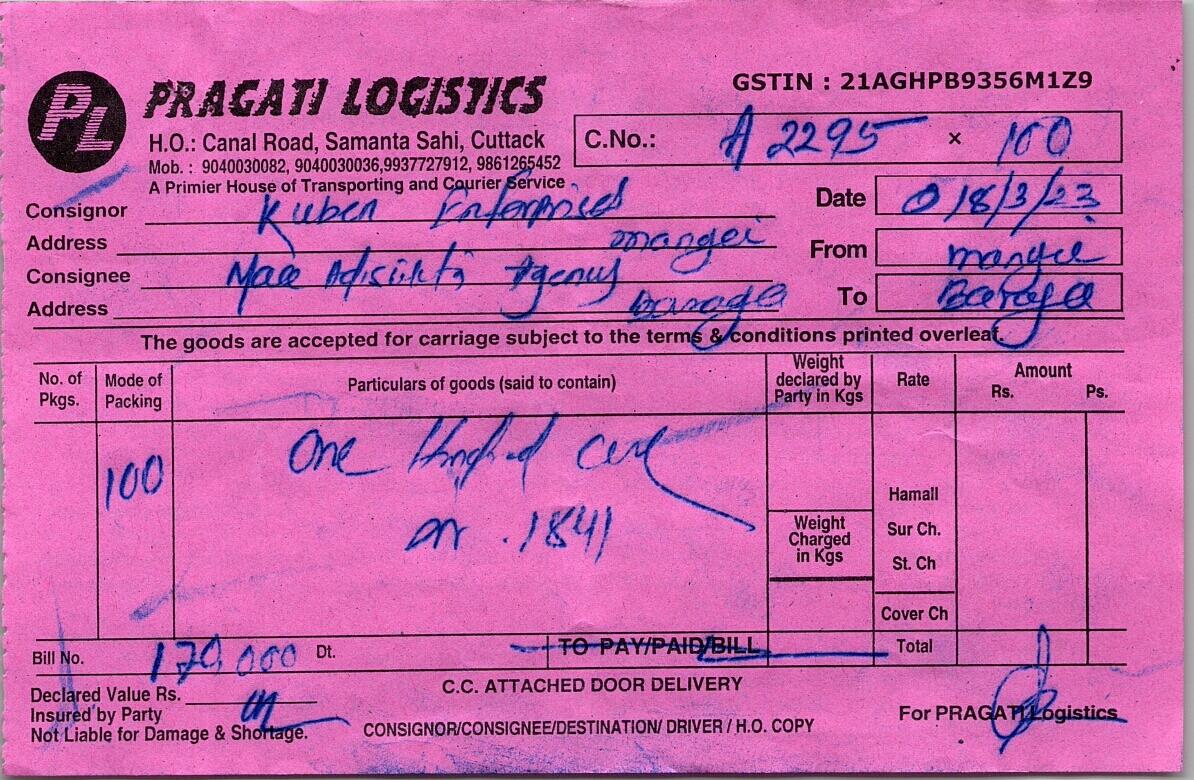 PL PRAGATI LOGISTICS
GSTIN : 21AGHPB9356M1Z9
H.O.: Canal Road, Samanta Sahi, Cuttack
Mob. : 9040030082, 9040030036,9937727912, 9861265452
A Primier House of Transporting and Courier Service
C.No.: A 2295 × 100
Consignor Kuber Enterprises
Date 018/3/23
Address
From
Consignee Agency
Address
To
The goods are accepted for carriage subject to the terms & conditions printed overleaf.
No. of Pkgs. Mode of Packing Particulars of goods (said to contain) Weight declared by Party in Kgs Rate Amount Rs. Ps.
100 One
1841
Weight Charged in Kgs
Hamall
Sur Ch.
St. Ch
Cover Ch
Bill No. 179000 Dt. TO PAY/PAID/BILL Total
Declared Value Rs.
C.C. ATTACHED DOOR DELIVERY
Insured by Party
Not Liable for Damage & Shortage.
CONSIGNOR/CONSIGNEE/DESTINATION/ DRIVER / H.O. COPY
For PRAGATI Logistics